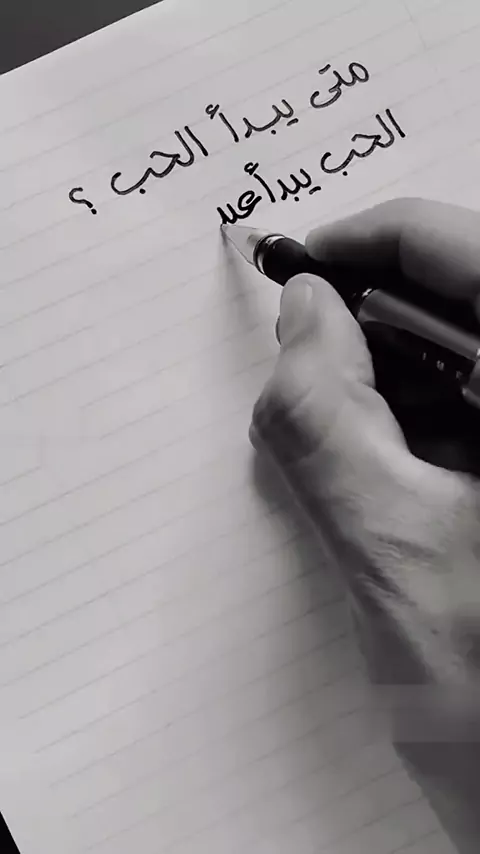 متى يبدأ الحب ؟
الحب يبدأ